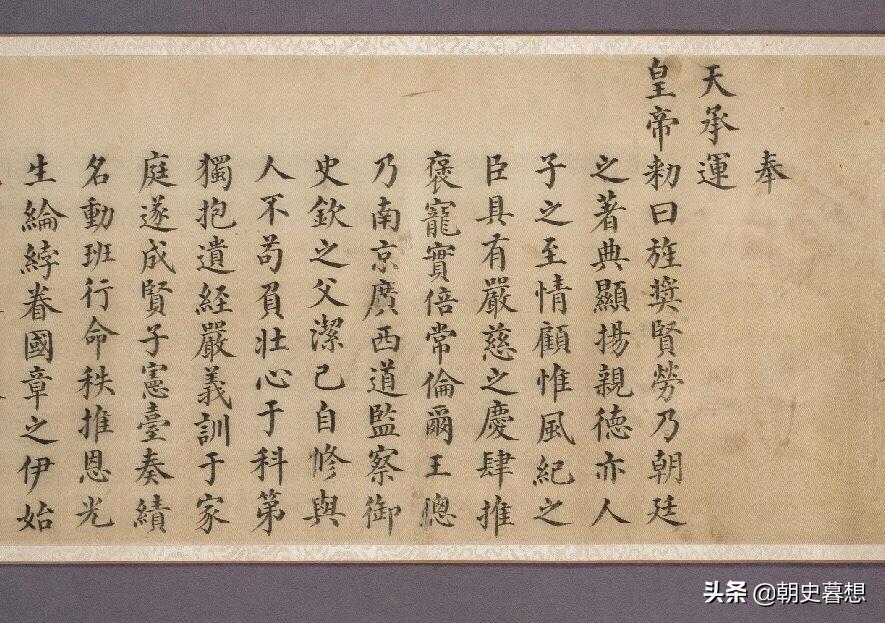 奉
天承運
皇帝勑曰旌奬賢勞乃朝廷
之著典顯揚親德亦人
子之至情顧惟風紀之
臣具有嚴慈之慶肆推
褒寵實倍常倫爾王聰
乃南京廣西道監察御
史欽之父潔己自修與
人不苟負壯心于科第
獨抱遺經嚴義訓于家
庭遂成賢子憲臺奏績
名動班行命秩推恩光
生綸綍眷國章之伊始
头条 @朝史暮想